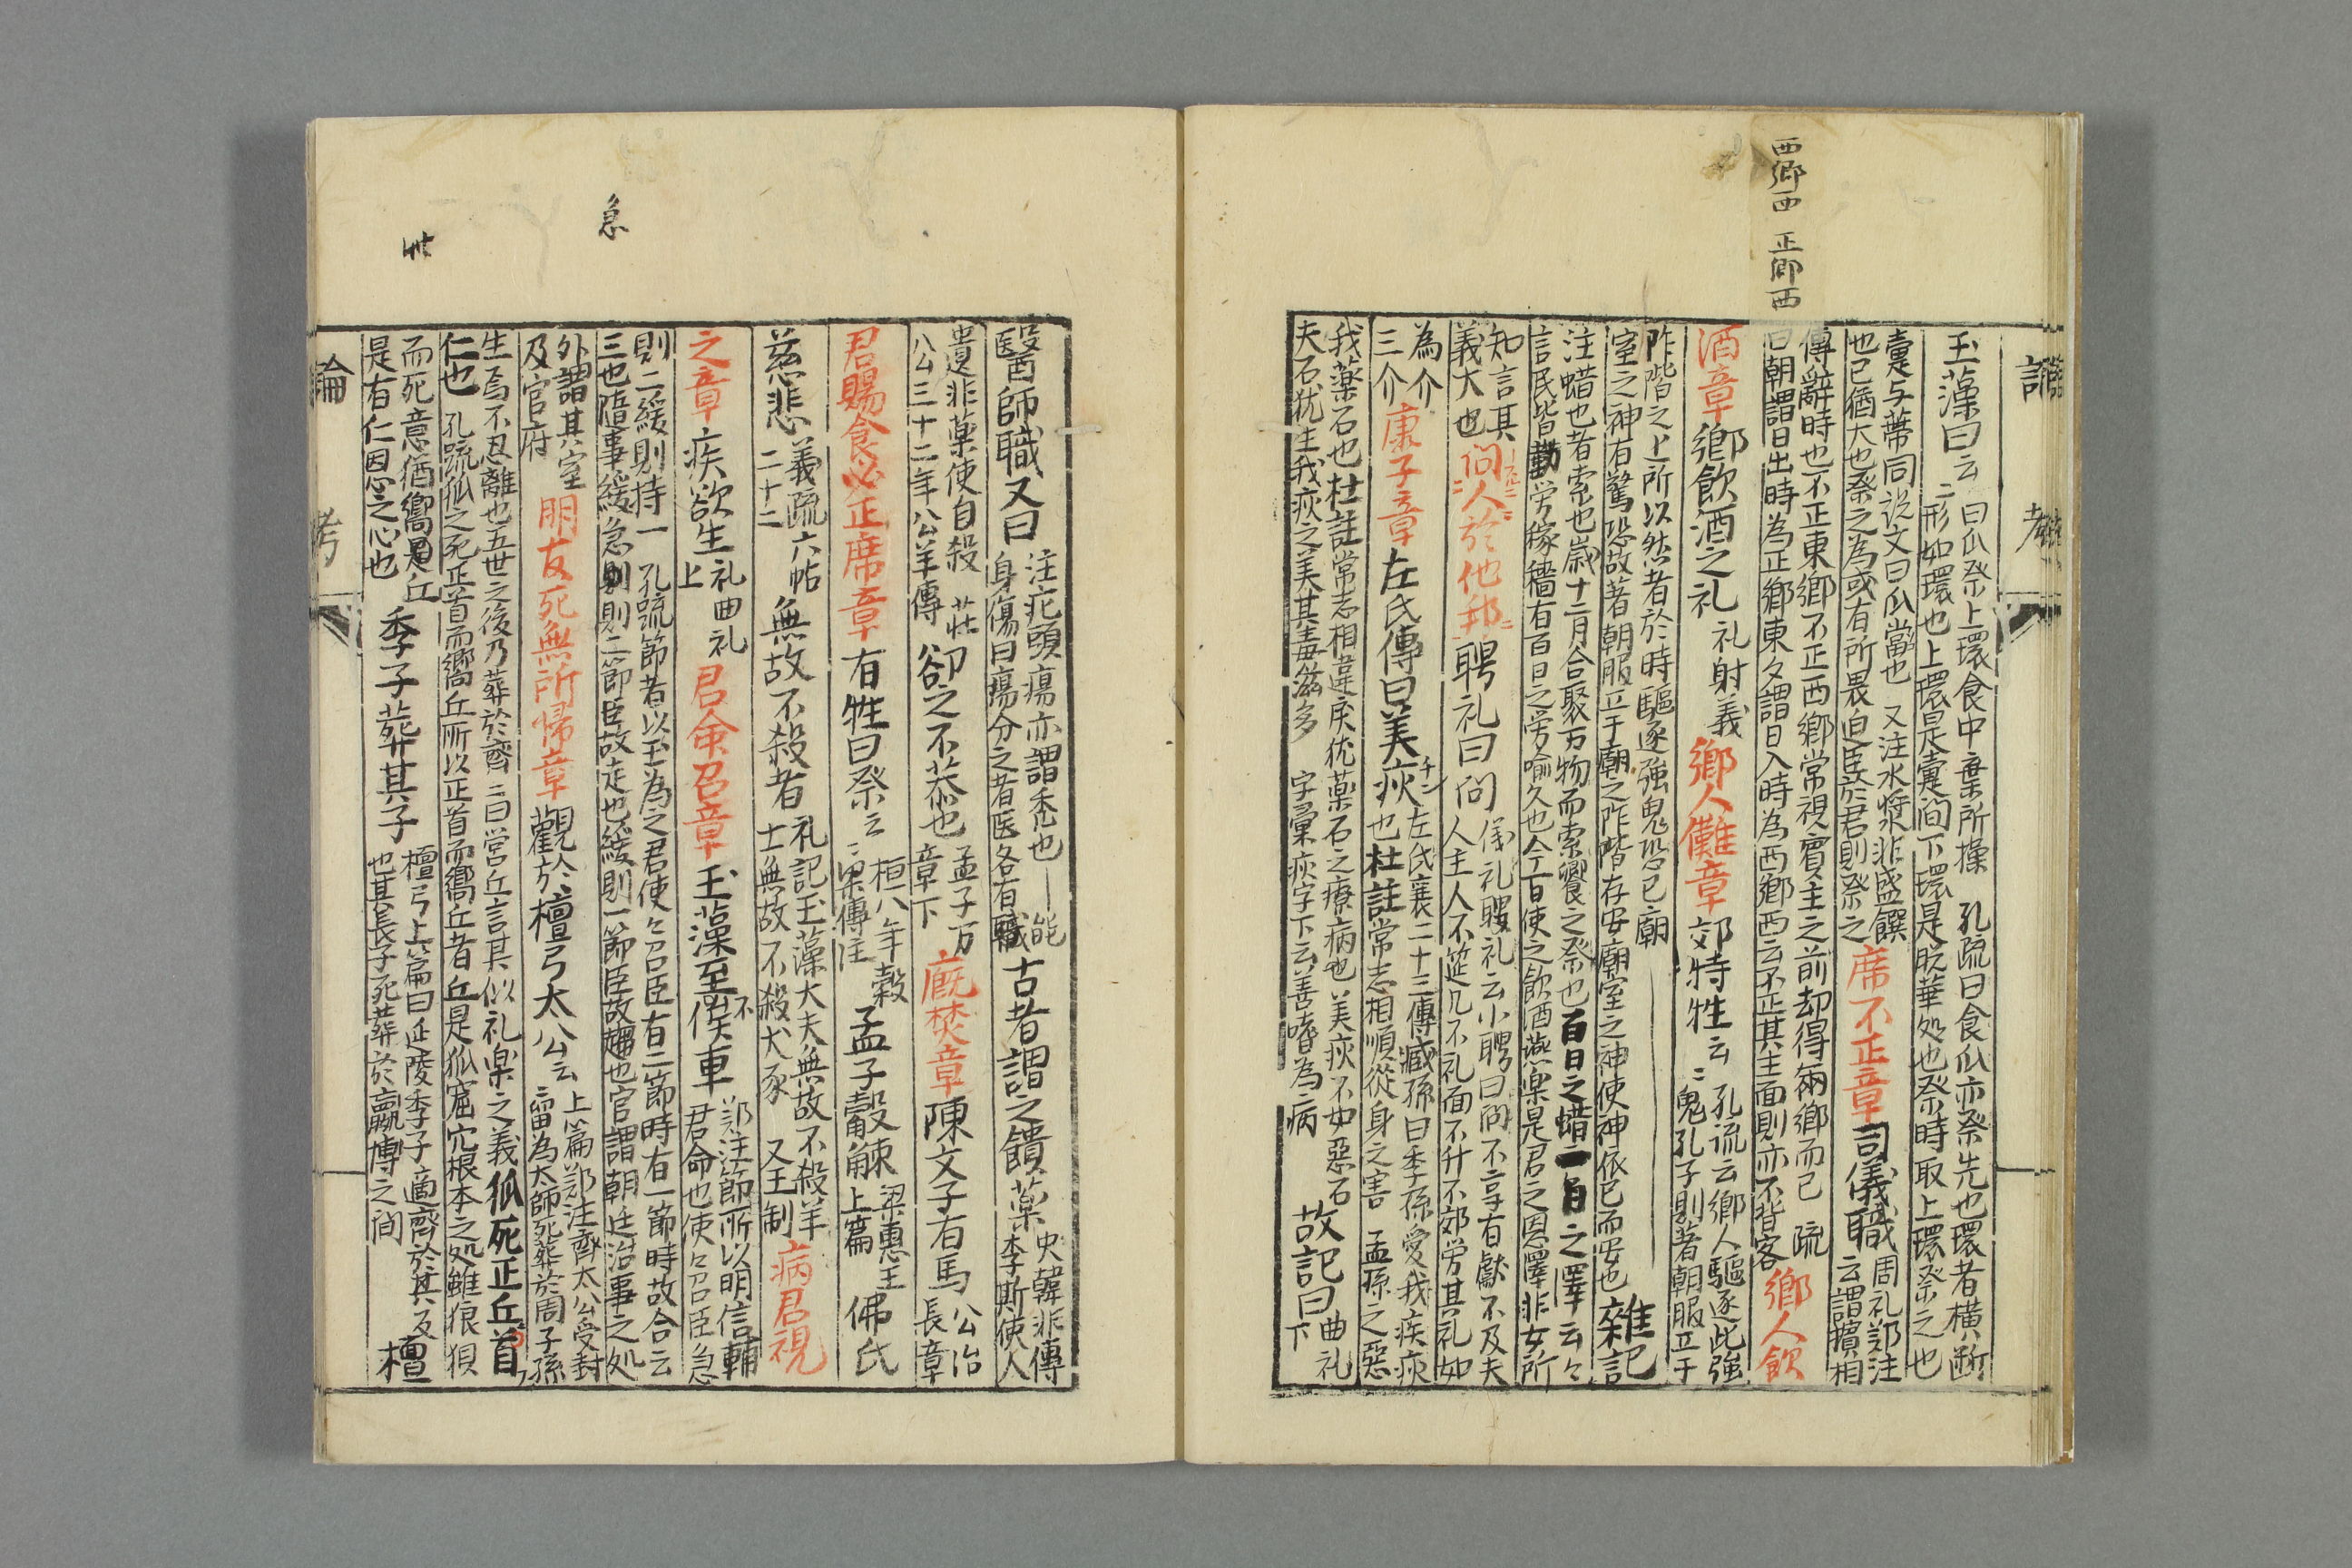 西郷西 正郷西
論 考
玉藻曰云 曰瓜祭上環食中棄所操 孔疏曰食瓜亦祭先也環者横断
二形如環也上環是疐間下環是脱華処也祭時取上環祭之也
疐与蔕同説文曰瓜當也 又注水漿非盛饌
也已猶大也祭之為或有所畏迫臣於君則祭之 席不正章 司儀職 周礼郑注
云謂擯相
傳辭時也不正東鄉不正西鄉常視賓主之前却得兩鄉而已 疏
曰朝謂日出時為正鄉東夕謂日入時為西鄉西云不正其主面則亦不背客 鄉人飲
酒章 鄉飲酒之礼 礼射義 鄉人儺章 郊特牲云 孔疏云鄉人驅逐此強
鬼孔子則著朝服立于
阼階之上所以然者於時驅逐強鬼恐已廟
室之神有驚恐故著朝服立于廟之阼階存安廟室之神使神依已而安也 雜記
注蜡也者索也歲十二月合聚万物而索饗之祭也百日之蜡一日之澤云々
言民皆勤労稼穡有百日之労喻久也今一日使之飲酒燕楽是君之恩澤非女所
知言其
義大也 問人於他邦 聘礼曰問 儀礼聘礼云小聘曰問不享有獻不及夫
人主人不筵几不礼面不升不郊労其礼如
為介
三介 康子章 左氏傳曰美疢 左氏襄二十三傳臧孫曰季孫愛我疾疢
也杜註常志相順從身之害 孟孫之惡
我薬石也杜註常志相違戻优薬石之療病也 美疢不如惡石
夫石犹生我疢之美其毒滋多 字彙疢字下云善嗜為病 故記曰 曲礼
下
急
世
醫師職又曰 注疕頭瘍亦謂禿也
身傷曰瘍分之者医各有能職 古者謂之饋薬 史韓非傳
李斯使人
遺非薬使自殺 莊
公三十二年公羊傳 卻之不恭也 孟子万
章下 廐焚章 陳文子有馬 公冶
長章
君賜食必正席章 有牲曰祭云 桓八年穀
梁傳注 孟子觳觫 梁惠王
上篇 佛氏
慈悲 義疏六帖
二十二 無故不殺者 礼記玉藻大夫無故不殺羊
士無故不殺犬豕 又王制 病君視
之章 疾欲生 礼曲礼
上 君命召章 玉藻至不俟車 郑注節所以明信輔
君命也使々召臣急
則二緩則持一 孔疏節者以玉為之君使々召臣有二節時有一節時故合云
三也隨事緩急則二節臣故走也緩則一節臣故趨也官謂朝廷治事之処
外謂其室
及官府 朋友死無所帰章 觀於檀弓太公云 上篇郑注齊太公受封
留為太師死葬於周子孫
生焉不忍離也五世之後乃葬於齊 曰営丘言其似礼楽之義狐死正丘首
仁也 孔疏狐之死正首而嚮丘所以正首而嚮丘者丘是狐窟穴根本之処雖狼狽
而死意猶嚮是丘
是有仁恩之心也 季子葬其子 檀弓上篇曰延陵季子適齊於其反
也其長子死葬於嬴博之間 檀
論 考